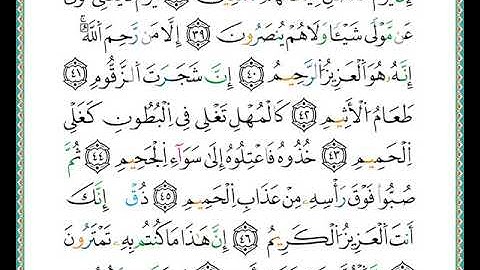 عَن مَّوْلًى شَيْـًٔا وَلَا هُمْ يُنصَرُونَ ٣٩ إِلَّا مَن رَّحِمَ ٱللَّهُ
إِنَّهُۥ هُوَ ٱلْعَزِيزُ ٱلرَّحِيمُ ٤٠ إِنَّ شَجَرَتَ ٱلزَّقُّومِ ٤١
طَعَامُ ٱلْأَثِيمِ ٤٢ كَٱلْمُهْلِ تَغْلِي فِي ٱلْبُطُونِ كَغَلْيِ
ٱلْحَمِيمِ ٤٣ خُذُوهُ فَٱعْتُلُوهُ إِلَىٰ سَوَآءِ ٱلْجَحِيمِ ٤٤ ثُمَّ
صُبُّوا۟ فَوْقَ رَأْسِهِۦ مِنْ عَذَابِ ٱلْحَمِيمِ ٤٥ ذُقْ إِنَّكَ
أَنتَ ٱلْعَزِيزُ ٱلْكَرِيمُ ٤٦ إِنَّ هَٰذَا مَا كُنتُم بِهِۦ تَمْتَرُونَ